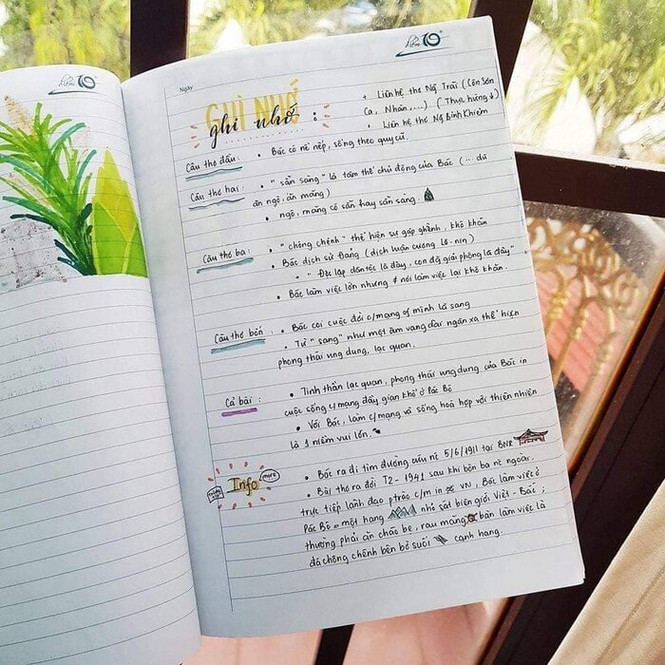 Ngày
GHI NHỚ
ghi nhớ :
+ Liên hệ thơ Ng Trãi (Côn Sơn
Ca, Nhàn,...) (Thực hứng ↓)
• Liên hệ thơ Ng Bỉnh Khiêm
Câu thơ đầu: • Bác có nề nếp, sống theo quy củ.
Câu thơ hai: • "sẵn sàng" là tâm thế chủ động của Bác (... dù
ăn ngô, ăn măng)
• ngô, măng có sẵn hay sẵn sàng.
Câu thơ ba: • "chông chênh" thể hiện sự gập ghềnh, khó khăn
• Bác dịch sử Đảng (dịch luận cương Lê-nin)
"Độc lập dân tộc là đây, con đg giải phóng là đây"
• Bác làm việc lớn nhưng đk nơi làm việc lại khó khăn.
Câu thơ bốn: • Bác coi cuộc đời c/mạng of mình là sang
• Từ "sang" như một âm vang đầy ngân xa thể hiện
phong thái ung dung, lạc quan.
Cả bài: • Tinh thần lạc quan, phong thái ung dung của Bác in
cuộc sống c/mạng đầy gian khổ ở Pác Bó
• Với Bác, làm c/mạng và sống hoà hợp với thiên nhiên
là 1 niềm vui lớn.
Info more
• Bác ra đi tìm đường cứu nc 5/6/1911 tại BNR
• Bài thơ ra đời T2-1941 sau khi bôn ba nc ngoài.
trực tiếp lãnh đạo p.trào c/m in VN, Bác làm việc ở
Pác Bó = một hang nhỏ sát biên giới Việt - Bắc;
thường phải ăn cháo bẹ, rau măng, bàn làm việc là
đá chông chênh bên bờ suối cạnh hang.